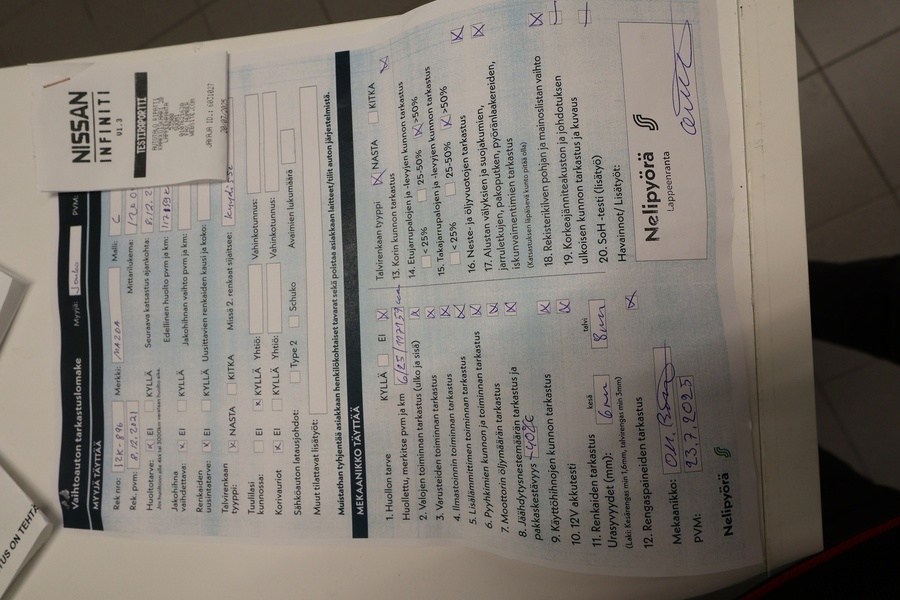 Vaihtoauton tarkastuslomake
Myyjä: Jouko
PVM:
MYYJÄ TÄYTTÄÄ
Rek nro: -896 Merkki: MAZDA Malli: C
Rek. pvm: 8.12.2021 Mittarilukema:
Huoltotarve: EI KYLLÄ Seuraava katsastus ajankohta: 8.12.2
Edellinen huolto pvm ja km:
Jakohihna vaihdettava: EI KYLLÄ Jakohihnan vaihto pvm ja km:
Renkaiden uusintatarve: EI KYLLÄ Uusittavien renkaiden kausi ja koko:
Talvirenkaan tyyppi: NASTA KITKA Missä 2. renkaat sijaitsee:
Tuulilasi kunnossa: EI KYLLÄ Yhtiö: Vahinkotunnus:
Korivauriot EI KYLLÄ Yhtiö: Vahinkotunnus:
Sähköauton latausjohdot: Type 2 Schuko Avaimien lukumäärä
Muut tilattavat lisätyöt:
Muistathan tyhjentää asiakkaan henkilökohtaiset tavarat sekä poistaa asiakkaan laitteet/tilit auton järjestelmistä.
MEKAANIKKO TÄYTTÄÄ
1. Huollon tarve KYLLÄ EI
Huollettu, merkitse pvm ja km 6/25
2. Valojen toiminnan tarkastus (ulko ja sisä)
3. Varusteiden toiminnan tarkastus
4. Ilmastoinnin toiminnan tarkastus
5. Lisälämmittimen toiminnan tarkastus
6. Pyyhkimien kunnon ja toiminnan tarkastus
7. Moottorin öljymäärän tarkastus
8. Jäähdytysnestemäärän tarkastus ja
pakkaskestävyys
9. Käyttöhihnojen kunnon tarkastus
10. 12V akkutesti
11. Renkaiden tarkastus kesä talvi
Urasyvyydet (mm): 6mm 8mm
(Laki: Kesärengas min 1.6mm, talvirengas min 3mm)
12. Rengaspaineiden tarkastus
Mekaanikko:
PVM: 23.7.2025
Nelipyörä
Talvirenkaan tyyppi NASTA KITKA
13. Korin kunnon tarkastus
14. Etujarrupalojen ja -levyjen kunnon tarkastus
< 25% 25-50% >50%
15. Takajarrupalojen ja -levyjen kunnon tarkastus
< 25% 25-50% >50%
16. Neste- ja öljyvuotojen tarkastus
17. Alustan välyksien ja suojakumien,
jarruletkujen, pakoputken, pyöränlaakereiden,
iskunvaimentimien tarkastus
(Katsastuksen läpäisevä kunto pitää olla)
18. Rekisterikilven pohjan ja mainoslistan vaihto
19. Korkeajänniteakuston ja johdotuksen
ulkoisen kunnon tarkastus ja kuvaus
20. SoH -testi (lisätyö)
Havainnot/ Lisätyöt:
Nelipyörä
Lappeenranta
NISSAN
INFINITI
V1.3
TESTIRAPORTIT
TUS ON TEHTÄ